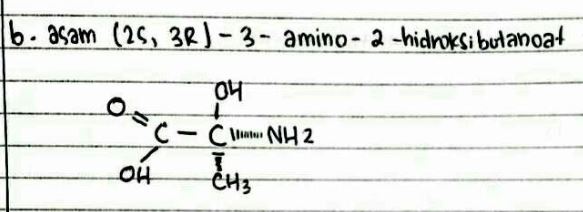 b. asam (2S, 3R) - 3 - amino - 2 - hidroksibutanoat
OH
O
C - C NH2
OH
CH3